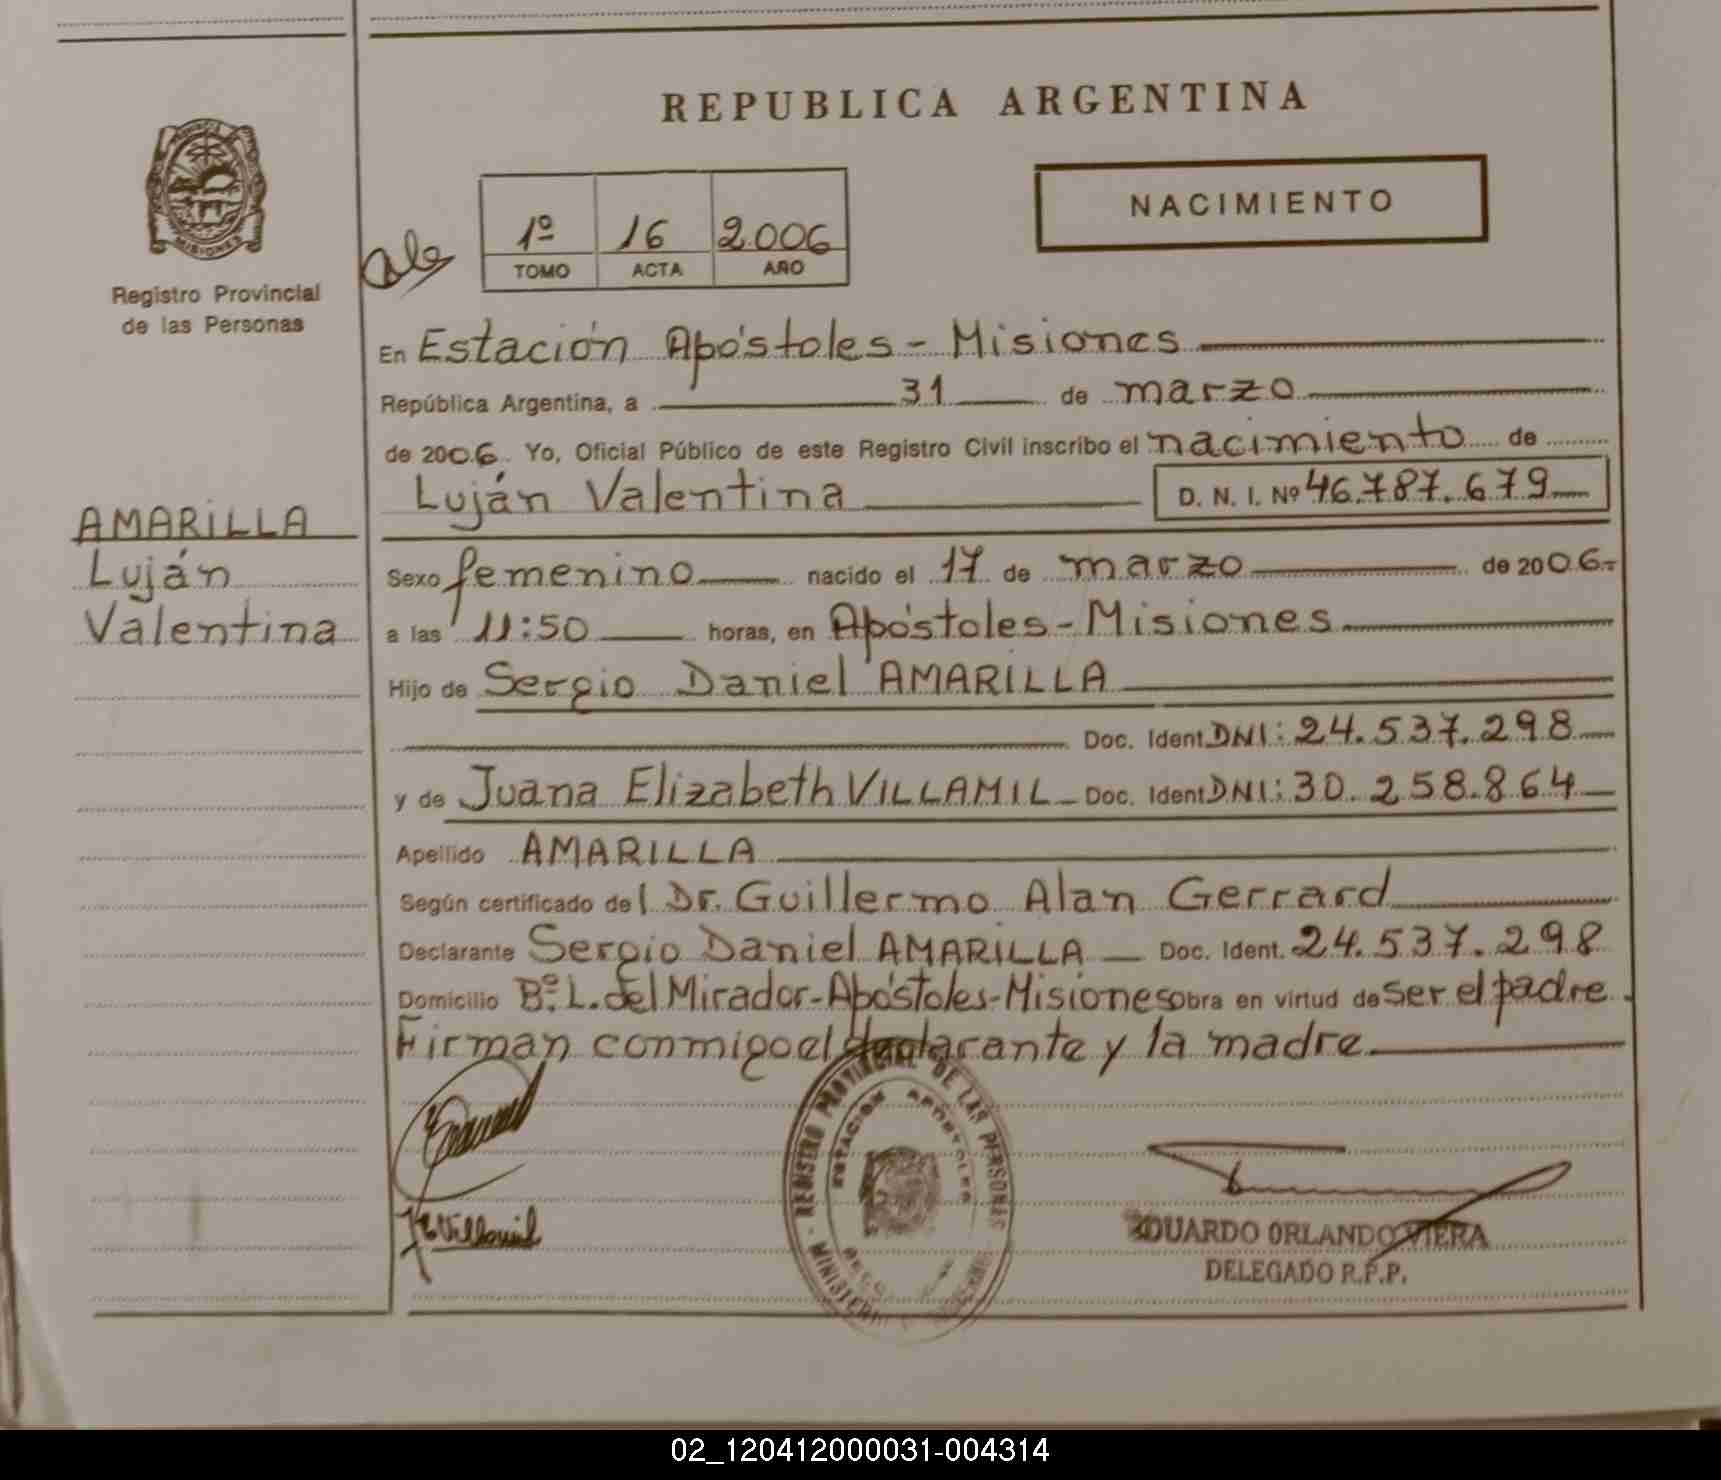 REPUBLICA ARGENTINA
NACIMIENTO
1º 16 2.006
TOMO ACTA AÑO
MISIONES
Registro Provincial
de las Personas
En Estación Apóstoles - Misiones
República Argentina, a 31 de marzo
de 2006. Yo, Oficial Público de este Registro Civil inscribo el nacimiento de
Luján Valentina D. N. I. Nº 46.787.679
AMARILLA
Luján
Valentina
Sexo femenino nacido el 17 de marzo de 2006.-
a las 11:50 horas, en Apóstoles - Misiones
Hijo de Sergio Daniel AMARILLA
Doc. Ident. DNI: 24.537.298
y de Juana Elizabeth VILLAMIL Doc. Ident. DNI: 30.258.864
Apellido AMARILLA
Según certificado del Dr. Guillermo Alan Gerrard
Declarante Sergio Daniel AMARILLA Doc. Ident. 24.537.298
Domicilio Bº. L. del Mirador - Apóstoles - Misiones obra en virtud de ser el padre.
Firman conmigo el declarante y la madre
REGISTRO PROVINCIAL DE LAS PERSONAS
ESTACION APOSTOLES
MINISTERIO
Villamil
EDUARDO ORLANDO VIERA
DELEGADO R.P.P.
02_120412000031-004314